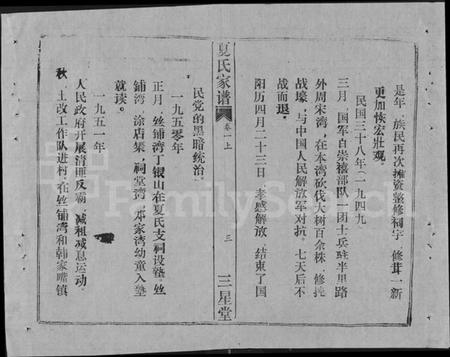 是年，族民再次摊资整修祠宇，修葺一新
更加恢宏壮观。
民国三十八年（一九四九
三月，国军百崇禧部队一团士兵驻半里路
外周宋湾，在本湾砍伐大树百余株，修挠
战壕，与中国人民解放军对抗，七天后不
战而退。
阳历四月二十三日，孝感解放，结束了国
夏氏家谱
卷一上
三
三星堂
民党的黑暗统治。
一九五零年
正月，丝铺湾丁银山在夏氏支祠设塾，丝
铺湾，涂店集，祠堂湾，邓家湾幼童入塾
就读。
一九五一年
人民政府开展清匪反霸，减租减息运动。
秋，土改工作队进村，在丝铺湾和韩家嘴镇
FamilySearch